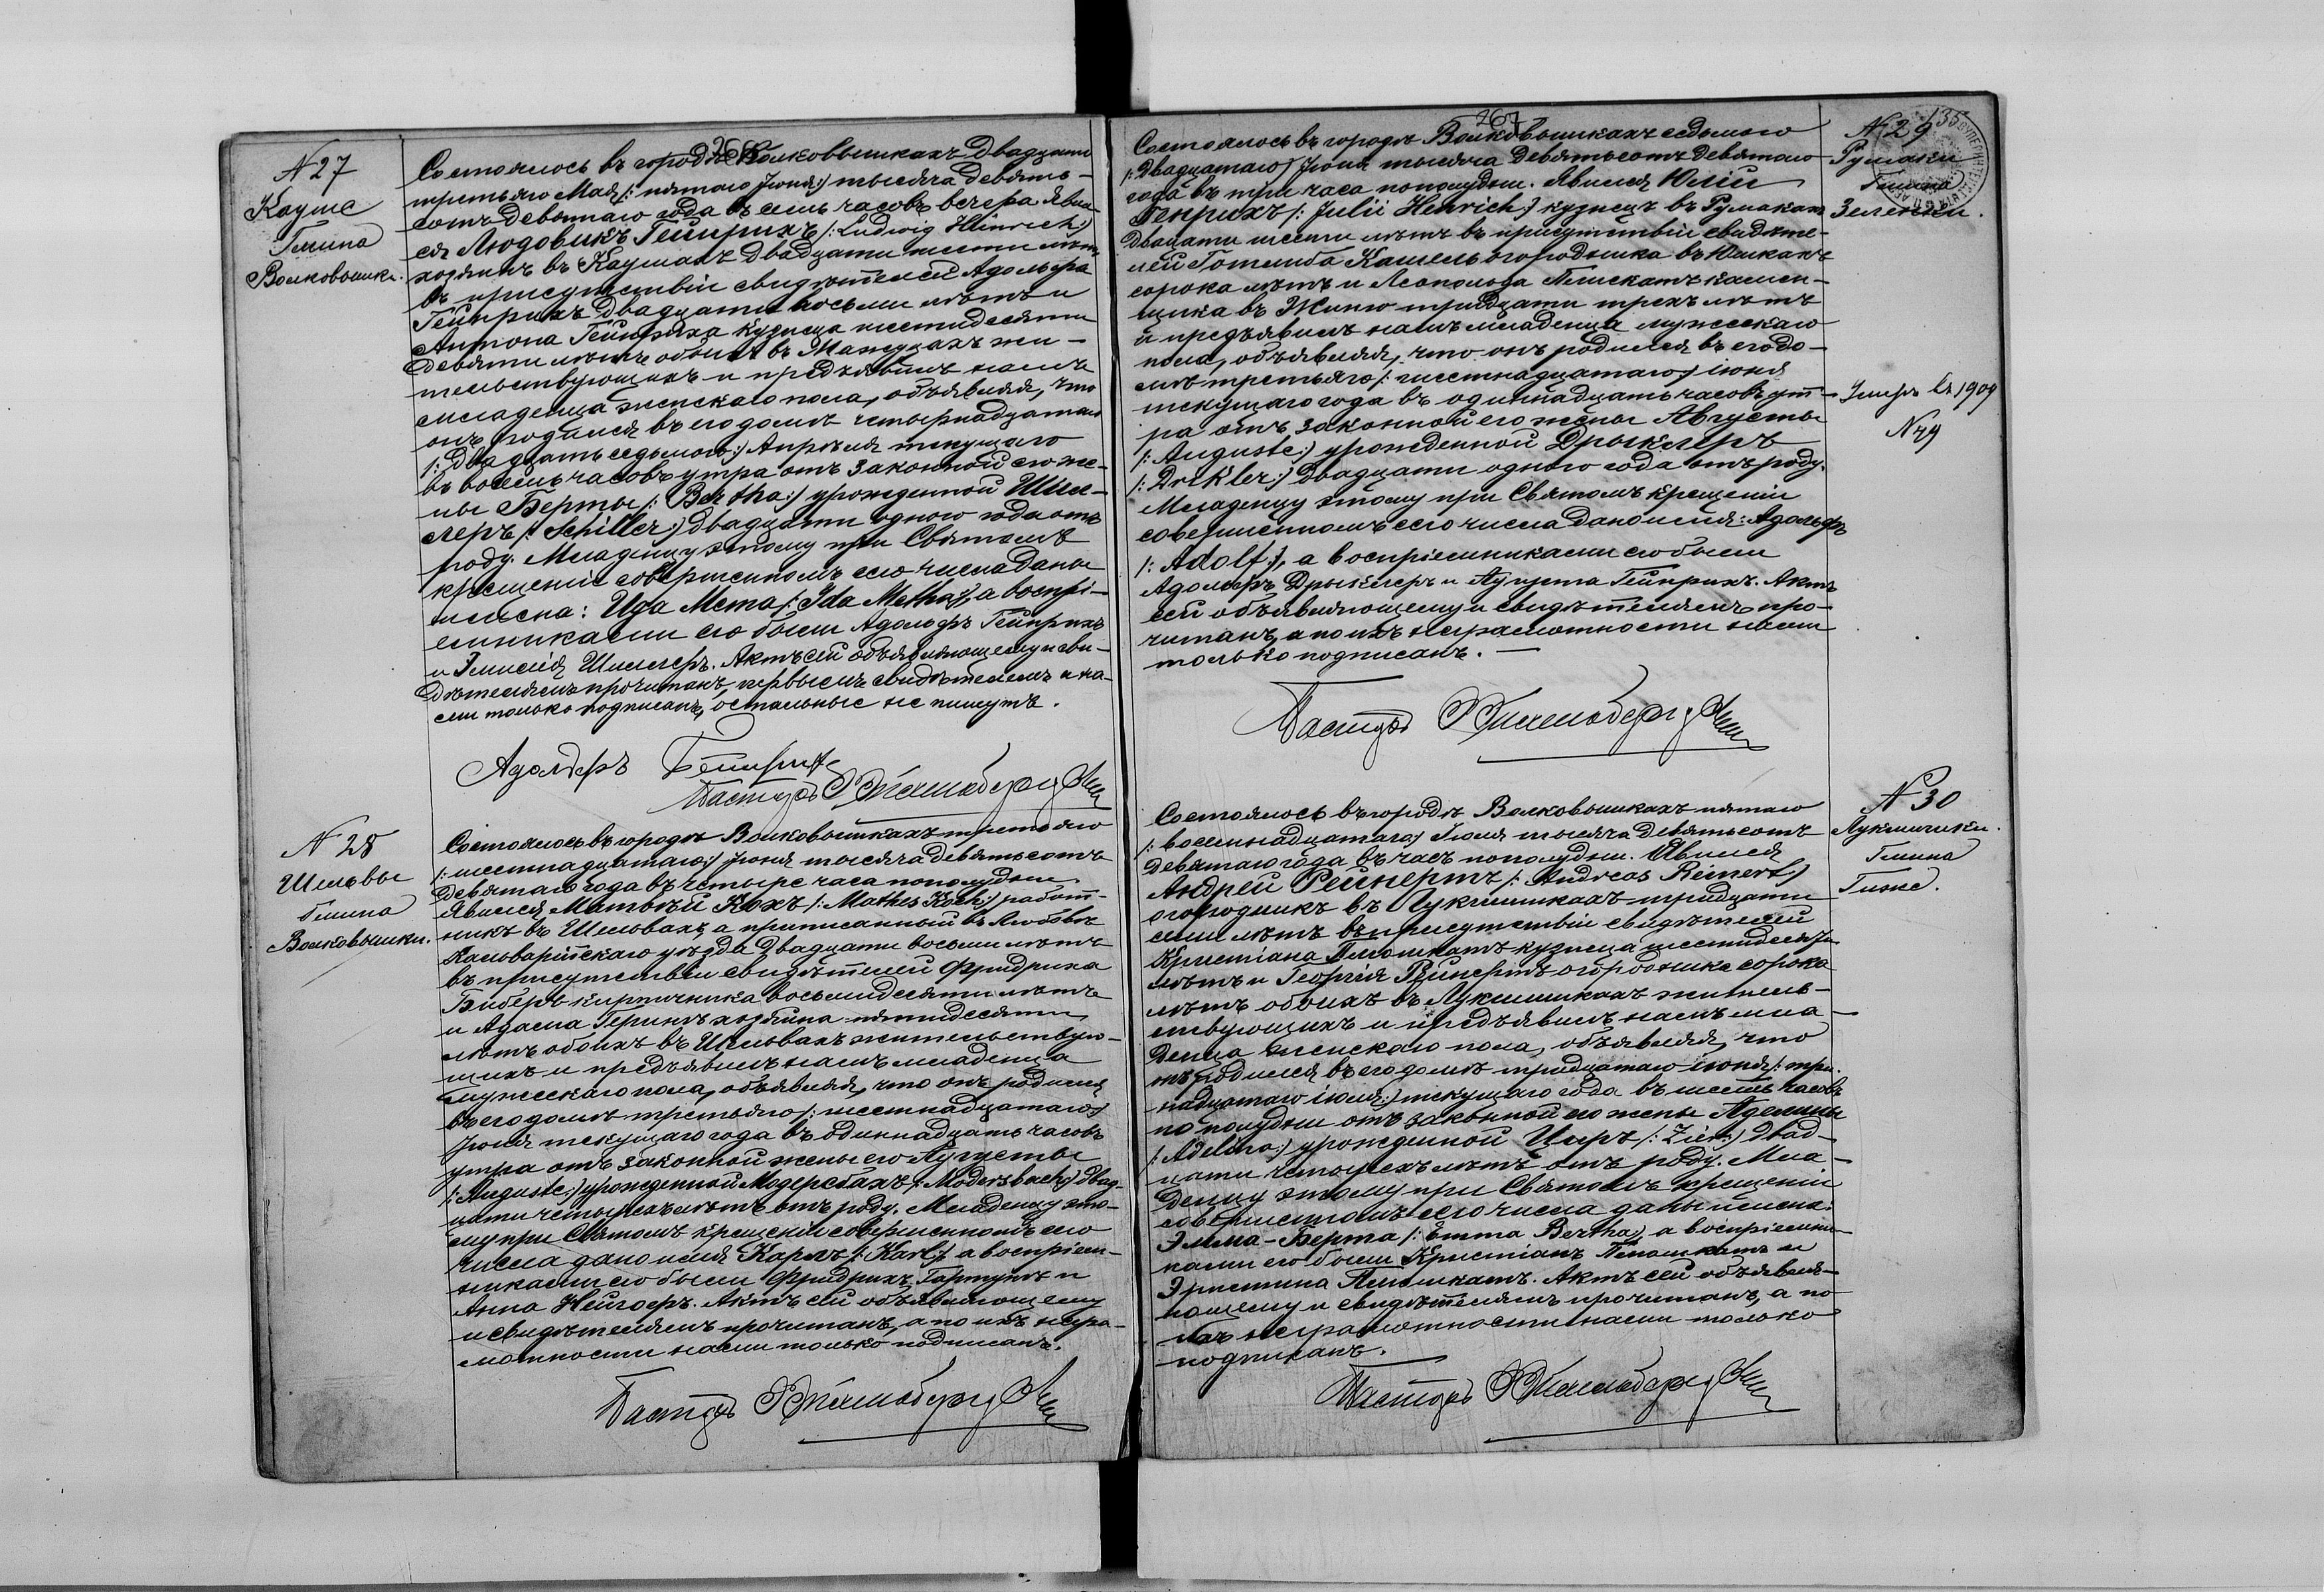 266
N 27
Кауше
Гмина
Волковышки.
Состоялось въ городѣ Волковышкахъ двадцать
третьяго Мая /: пятаго Іюня :/ тысяча девять-
сотъ девятаго года въ семь часовъ вечера. Явил-
ся Людовикъ Гейнрихъ /: Ludwig Heinrich :/
хозяинъ въ Каушахъ двадцати шести лѣтъ
въ присутствіи свидѣтелей Адольфа
Гейнрихъ двадцати восьми лѣтъ и
Антона Гейнриха кузнеца шестидесяти
девяти лѣтъ обоихъ въ жи-
тельствующихъ и предъявилъ намъ
младенца женскаго пола, объявляя, что
онъ родился въ его домѣ четырнадцатаго
/: двадцать седьмого :/ Апрѣля текущаго
въ восемь часовъ утра отъ законной его же-
ны Берты /: Bertha :/ урожденной Шил-
леръ /: Schiller :/ двадцати одного года отъ
роду. Младенцу этому при Святомъ
крещеніи совершенномъ сего числа даны
имена: Ида Мета /: Ida Metha :/, а воспрі-
емниками его были Адольфъ Гейнрихъ
и Эмилія Шиллеръ. Актъ сей объявляющему и сви-
дѣтелямъ прочитанъ, первымъ свидѣтелемъ и на-
ми только подписанъ, остальные не пишутъ.
Адольфъ Гейнрихъ
Пасторъ
N 28
Шельвы
Гмина
Волковышки.
Состоялось въ городѣ Волковышкахъ третьяго
/: шестнадцатаго :/ Іюня тысяча девятьсотъ
девятаго года въ четыре часа пополудни
Явился Матвѣй Кохъ /: Mathes Koch :/ работ-
никъ въ Шельвахъ, а приписанный въ Любовѣ
Кальварійскаго уѣзда двадцати восьми лѣтъ
въ присутствіи свидѣтелей Фридриха
Биберъ кирпичника восьмидесяти лѣтъ
и Адама Герингъ хозяина пятидесяти
лѣтъ обоихъ въ Шельвахъ жительствую-
щихъ и предъявилъ намъ младенца
мужескаго пола, объявляя, что онъ родился
въ его домѣ третьяго /: шестнадцатаго :/
Іюня текущаго года въ одиннадцать часовъ
утра отъ законной жены его Аугусты
/: Auguste :/ урожденной Модерсбахъ /: Modersbach :/ двад-
цати четырехъ лѣтъ отъ роду. Младенцу это-
му при Святомъ крещеніи совершенномъ сего
числа дано имя Карлъ /: Karl :/, а воспріем-
никами его были Фридрихъ Гартунгъ и
Анна Нейгоферъ. Актъ сей объявляющему
и свидѣтелямъ прочитанъ, а по ихъ негра-
мотности нами только подписанъ.
Пасторъ
267
135
N 29
Румаки
Гмина
Зеленки.
Состоялось въ городѣ Волковышкахъ седьмого
/: двадцатаго :/ Іюня тысяча девятьсотъ девятаго
года въ три часа пополудни. Явился Юлій
Генрихъ /: Julii Henrich :/ кузнецъ въ Румакахъ
двадцати шести лѣтъ въ присутствіи свидѣте-
лей Готлиба Кашель огородника въ
сорока лѣтъ и Леопольда Плискатъ камен-
щика въ тридцати трехъ лѣтъ
и предъявилъ намъ младенца мужескаго
пола, объявляя, что онъ родился въ его до-
мѣ третьяго /: шестнадцатаго :/ Іюня
текущаго года въ одиннадцать часовъ ут-
ра отъ законной его жены Августы
/: Auguste :/ урожденной Дрыклеръ
/: Drikler :/ двадцати одного года отъ роду.
Младенцу этому при Святомъ крещеніи
совершенномъ сего числа дано имя: Адольфъ
/: Adolf :/, а воспріемниками его были
Адольфъ Дрыклеръ и Аугуста Гейнрихъ. Актъ
сей объявляющему и свидѣтелямъ про-
читанъ, а по ихъ неграмотности нами
только подписанъ.
Умеръ 1909
N 49
Пасторъ
N 30
Лукшишки.
Гмина
Гиже.
Состоялось въ городѣ Волковышкахъ пятаго
/: восемнадцатаго :/ Іюля тысяча девятьсотъ
девятаго года въ часъ пополудни. Явился
Андрей Рейнертъ /: Andreas Reinert :/
огородникъ въ Лукшишкахъ тридцати
семи лѣтъ въ присутствіи свидѣтелей
Кристіана Плюшкатъ кузнеца шестидесяти
лѣтъ и Георгія Рейнертъ огородника сорока
лѣтъ обоихъ въ Лукшишкахъ житель-
ствующихъ и предъявилъ намъ мла-
денца женскаго пола, объявляя, что
онъ родился въ его домѣ тридцатаго Іюня /: три-
надцатаго Іюля :/ текущаго года въ шесть часовъ
по полудни отъ законной его жены Аделины
/: Adelina :/ урожденной Циръ /: Zier :/ двад-
цати четырехъ лѣтъ отъ роду. Мла-
денцу этому при Святомъ крещеніи
совершенномъ сего числа даны имена:
Эмма-Берта /: Emma Bertha :/, а воспріемни-
ками его были Кристіанъ Плюшкатъ и
Эрнстина Плюшкатъ. Актъ сей объявля-
ющему и свидѣтелямъ прочитанъ, а по
ихъ неграмотности нами только
подписанъ.
Пасторъ